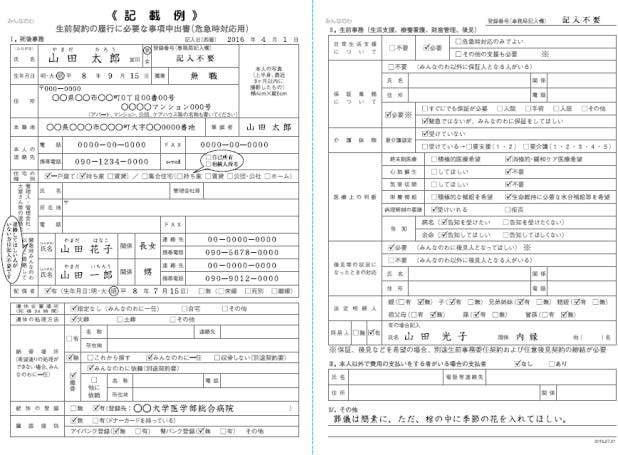 みんなのわ
《 記 載 例 》
生前契約の履行に必要な事項申出書(危急時対応用)
Ⅰ. 死後事務
記入日(西暦) 2016 年 4 月 1 日
氏 名
やまだ たろう
山田 太郎
登録番号(事務局記入欄)
記入不要
生年月日
8 年 9 月 15 日
職業
無 職
本人の写真
(上半身、最近
3ヶ月以内に
撮影したもの)
住 所
〒000-0000
〇〇県〇〇市〇〇町0丁目00番00号
〇〇〇〇マンション000号
本 籍 地
〇〇県〇〇〇市〇〇〇町大字〇〇0000番地
筆頭者
山田 太郎
本人の
連絡先
電 話
00-0000-0000
FAX
00-0000-0000
携帯電話
090-1234-0000
e-mail
自己所有
氏 名
管理会社等
所在地
電 話
FAX
氏名
やまだ はなこ
山田 花子
関係
長女
連絡先
00-0000-0000
携帯電話
090-5678-0000
氏名
やまだ いちろう
山田 一郎
関係
甥
連絡先
00-0000-0000
携帯電話
090-9012-0000
配偶者
遺体安置場所
指定なし(みんなのわに一任) 自宅 その他
遺体の処理方法
火葬 土葬 その他
納骨場所
名 称
連絡先
所在地
これから探す みんなのわに一任 収骨しない(別途契約書)
みんなのわに依頼(別途契約書)
他に
依頼
名 称
電話
所在地
献体の登録
無 有(登録先: 〇〇大学医学部総合病院 )
臓器提供
無 有(ドナーカードを持っている)
アイバンク登録(無 有) 腎バンク登録(無 有) その他
みんなのわ
登録番号(事務局記入欄) 記入不要
Ⅱ. 生前事務(生活支援、療養看護、財産管理、後見)
日常生活支援
について
不要 必要
危急時対応のみでよい
その他の支援も必要 ※
保証業務
について
不要 (みんなのわ以外に保証人となる人がいる)
氏 名
関係
住 所
電話
必要※
すでにでも保証が必要 入院 手術 入居 その他
緊急ではないが、みんなのわに保証をしてほしい
介護保険
要介護認定
受けていない
受けている→ 要支援(1・2) 要介護(1・2・3・4・5)
医療上の判断
終末期医療
積極的医療希望
消極的・緩和ケア医療希望
心肺蘇生
してほしい
不要
気管切開
してほしい
不要
栄養補給
積極的な補給を希望
生命維持に必要な水分補給等を希望
受けいれる
拒否
告知
病名( 告知を受けたい 告知を受けたくない)
余命( 告知してほしい 告知してほしくない)
後見等の状況に
なったときの対応
必要 (みんなのわに後見人となってほしい) ※
不要 (みんなのわ以外に後見人となる人がいる)
氏 名
関係
住 所
電話
法定相続人
親( 有 無) 子( 有 無) 兄弟姉妹( 有 無) 甥姪( 有 無)
祖父母( 有 無) 孫( 有 無) 曾孫( 有 無)
同居人
無 有
有の場合記入
氏名 山田 光子
関係 内縁
他( )名
※保証、後見などを希望の場合、別途生前事務委任契約および任意後見契約の締結が必要
Ⅲ. 本人以外で費用の支払いをする者がいる場合の支払者 なし あり
氏 名
電話等連絡先
住 所
関係
Ⅳ. その他
葬儀は簡素に、ただ、棺の中に季節の花を入れてほしい。